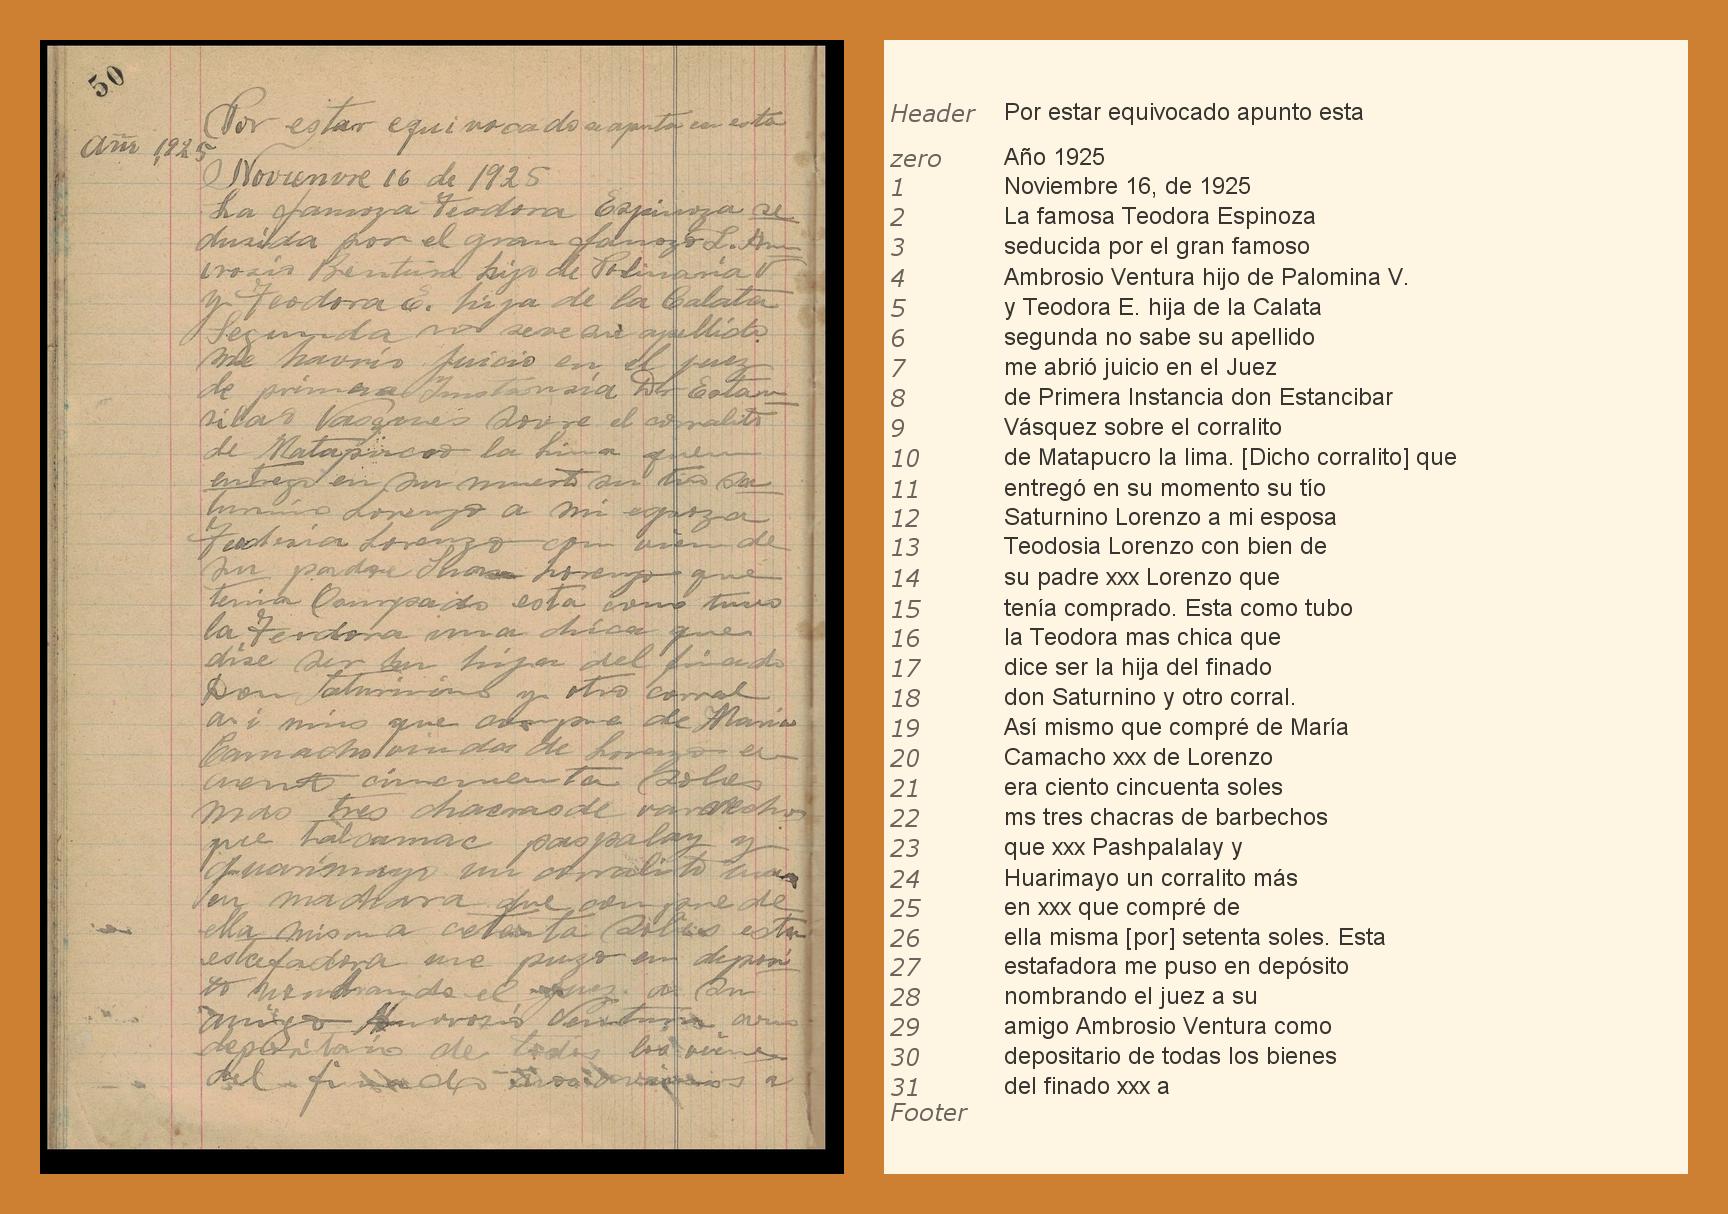 50
Por estar equivocado se apunta en esta
Año 1925
Novienvre 16 de 1925
La famoza Teodora Espinoza se
dusida por el gran famozo L. Am
vrosio Bentura hijo de Polinaria V
y Teodora E. hija de la Calata
Segunda no save su apellido
me havrio juicio en el juez
de primera Instansia Dr Estan
silao Vasques sovre el corralito
de la hima quen
entrego en su muerte su tio Sa
turnino Lorenzo a mi espoza
Lorenzo con vien de
su padre Lorenzo que
tenia Compado esta como tuvo
la Teodora una chica que
dise ser su hija del finado
Don Saturnino y otro corral
asi mino que compre de Maria
Camacho viuda de Lorenzo en
cincuenta Soles
mas tres chacras de varvechos
que talcamac paspalay y
Quarimayo un corralito mas
en que compre de
ella misma cetenta Soles esta
estafadora me puzo en deposi
to nonbrando el juez a su
amigo Amvrosio Ventura como
depositario de todos los vienes
del finado a
Header Por estar equivocado apunto esta
zero Año 1925
1 Noviembre 16, de 1925
2 La famosa Teodora Espinoza
3 seducida por el gran famoso
4 Ambrosio Ventura hijo de Palomina V.
5 y Teodora E. hija de la Calata
6 segunda no sabe su apellido
7 me abrió juicio en el Juez
8 de Primera Instancia don Estancibar
9 Vásquez sobre el corralito
10 de Matapucro la lima. [Dicho corralito] que
11 entregó en su momento su tío
12 Saturnino Lorenzo a mi esposa
13 Teodosia Lorenzo con bien de
14 su padre xxx Lorenzo que
15 tenía comprado. Esta como tubo
16 la Teodora mas chica que
17 dice ser la hija del finado
18 don Saturnino y otro corral.
19 Así mismo que compré de María
20 Camacho xxx de Lorenzo
21 era ciento cincuenta soles
22 ms tres chacras de barbechos
23 que xxx Pashpalalay y
24 Huarimayo un corralito más
25 en xxx que compré de
26 ella misma [por] setenta soles. Esta
27 estafadora me puso en depósito
28 nombrando el juez a su
29 amigo Ambrosio Ventura como
30 depositario de todas los bienes
31 del finado xxx a
Footer